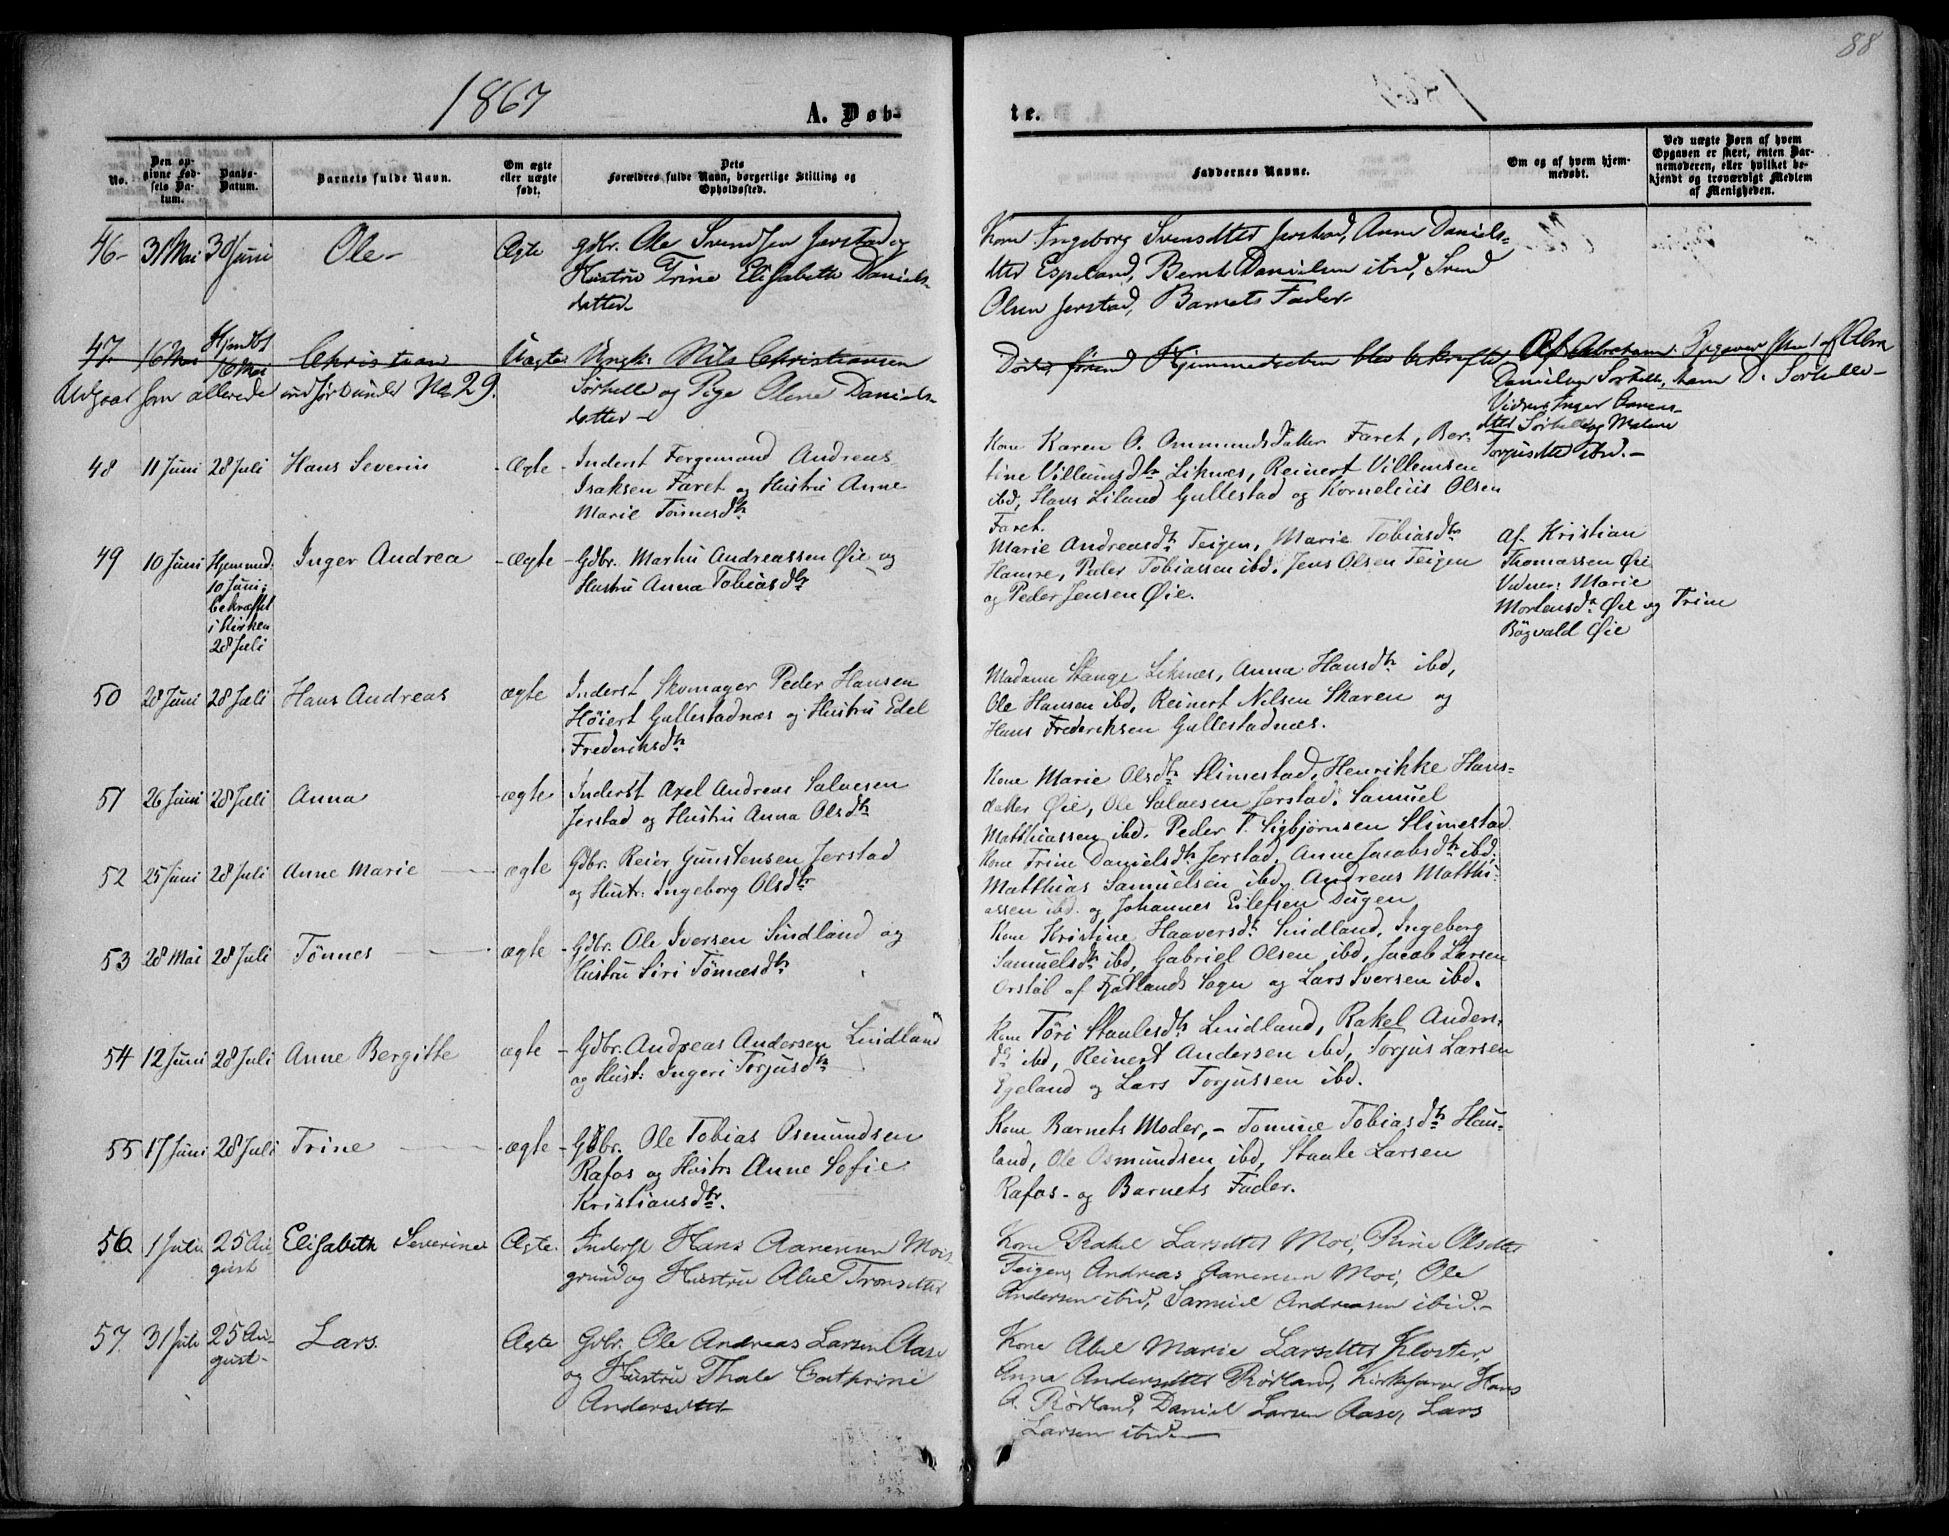 88
1867
A. Døb-
te.
No.
Den opgivne Fødsels Datum.
Daabs-Datum.
Barnets fulde Navn.
Om ægte eller uægte født.
Dets Forældres fulde Navn, borgerlige Stilling og Opholdssted.
Faddernes Navne.
Om og af hvem hjemmedøbt.
Ved uægte Børn af hvem Opgaven er skeet, enten Barnemoderen, eller hvilket bekjendt og troværdigt Medlem af Menigheden.
46- 31 Mai 30 Juni Ole- Ægte gdbr. Ole Svendsen Jerstad og
Hustru Trine Elisabeth Daniels-
datter-
Kone Ingeborg Svensdtter Jerstad, Anne Daniels-
dtter Espeland, Bernt Danielsen ibid, Svend
Olsen Jerstad, Barnets Fader-
47. 16 Mai Hjemdbt 16 Mai Christian Uægte Ungk: Nils Christiansen
Udgaar som allerede indført under No 29.
Sørhelle og Pige Olene Daniels-
datter-
Døde, førend Hjemmedaaben blev bekræftet
Af Abraham
Danielsen Sørhelle,
Vidner: Inger
dtter Sørhelle og Malene
Torjusdtter ibid.-
Opgaven skeet af Abra
ham D. Sørhelle-
48 11 Juni 28 Juli Hans Severin - Ægte - Inderst Fergemand Andreas
Isaksen Faret og Hustru Anne
Marie Tønnesdtr
Kone Karen O. Ommundsdatter Faret, Ber-
tine Villumsdtr Liknes, Reinert Villumsen
ibd, Hans Liland Gullestad og Kornelius Olsen
Faret.
49 10 Juni Hjemmed: 10 Juni; bekræftet i Kirken 28 Juli Inger Andrea - Ægte - Gdbr. Martin Andreassen Øie og
Hustru Anna Tobiasdtr
Marie Andreasdtr Teigen, Marie Tobiasdtr
Hamre, Peder Tobiassen ibd. Jens Olsen Teigen
og Peder Jensen Øie.
Af Kristian
Thomassen Øie
Vidner: Marie
Mortensdtr Øie og Trine
Bøgvald Øie
50 28 Juni 28 Juli Hans Andreas ægte Inderst Skomager Peder Hansen
Høiert Gullestadnæs og Hustru Edel
Frederiksdtr
Madame Stange Liknes, Anna Hansdtr ibd,
Ole Hansen ibd, Reinert Nilsen Skaren og
Hans Frederiksen Gullestadnæs.
51 26 Juni 28 Juli Anna - ægte - Inderst Axel Andreas Salvesen
Jerstad og Hustru Anna Olsdtr
Kone Marie Olsdtr Slimestad, Henrikke Hans-
datter Øie, Ole Salvesen Jerstad. Samuel
Matthiassen ibd. Peder T. Sigbjørnsen Slimestad
52 25 Juni 28 Juli Anne Marie ægte Gdbr. Reier Gunstensen Jerstad
og Hust: Ingeborg Olsdtr
Kone Trine Danielsdtr Jerstad. Anne Jacobsdtr ibd;
Matthias Samuelsen ibd, Andreas Matthi-
assen ibd. og Johannes Eilefsen Dugen
53 28 Mai 28 Juli Tønnes - ægte - Gdbr. Ole Iversen Lindland og
Hustru Siri Tønnesdtr
Kone Kristine Haaversdtr Lindland, Ingeborg
Samuelsdtr ibd, Gabriel Olsen ibd, Jacob Larsen
Orstøl af Fjotlands Sogn og Lars Iversen ibd.
54 12 Juni 28 Juli Anne Bergitte ægte - Gdbr. Andreas Andersen Lindland
og Hust: Ingeri Torjusdtr
Kone Tøri Staalesdtr Lindland, Rakel Anders-
dtr ibd, Reinert Andersen ibd, Torjus Larsen
Egeland og Lars Torjussen ibd.
55 17 Juni 28 Juli Trine - ægte - Gdbr. Ole Tobias Osmundsen
Rafos og Hustr Anne Sofie
Kristiansdtr.
Kone Barnets Moder, - Tomine Tobiasdtr Hau-
land, Ole Osmundsen ibd, Staale Larsen
Rafos - og Barnets Fader.
56. 1 Juli 25 August Elisabeth Severine Ægte. Inderst Hans Aanensen Mois-
grund og Hustru Abel Tronsdtter
Kone Rakel Larsdtter Moi, Rine Olsdtter
Teigen, Andreas Aanensen Moi, Ole
Andersen ibid, Samuel Andreasen ibid.-
57. 31 Juli 25 August- Lars. Ægte Gdbr. Ole Andreas Larsen Aase
og Hustru Thale Cathrine
Andersdtter
Kone Abel Marie Larsdtter Kloster,
Anna Andersdtter Rørland, Kirkesanger Hans
A. Rørland, Daniel Larsen Aase, Lars
Larsen ibid.-